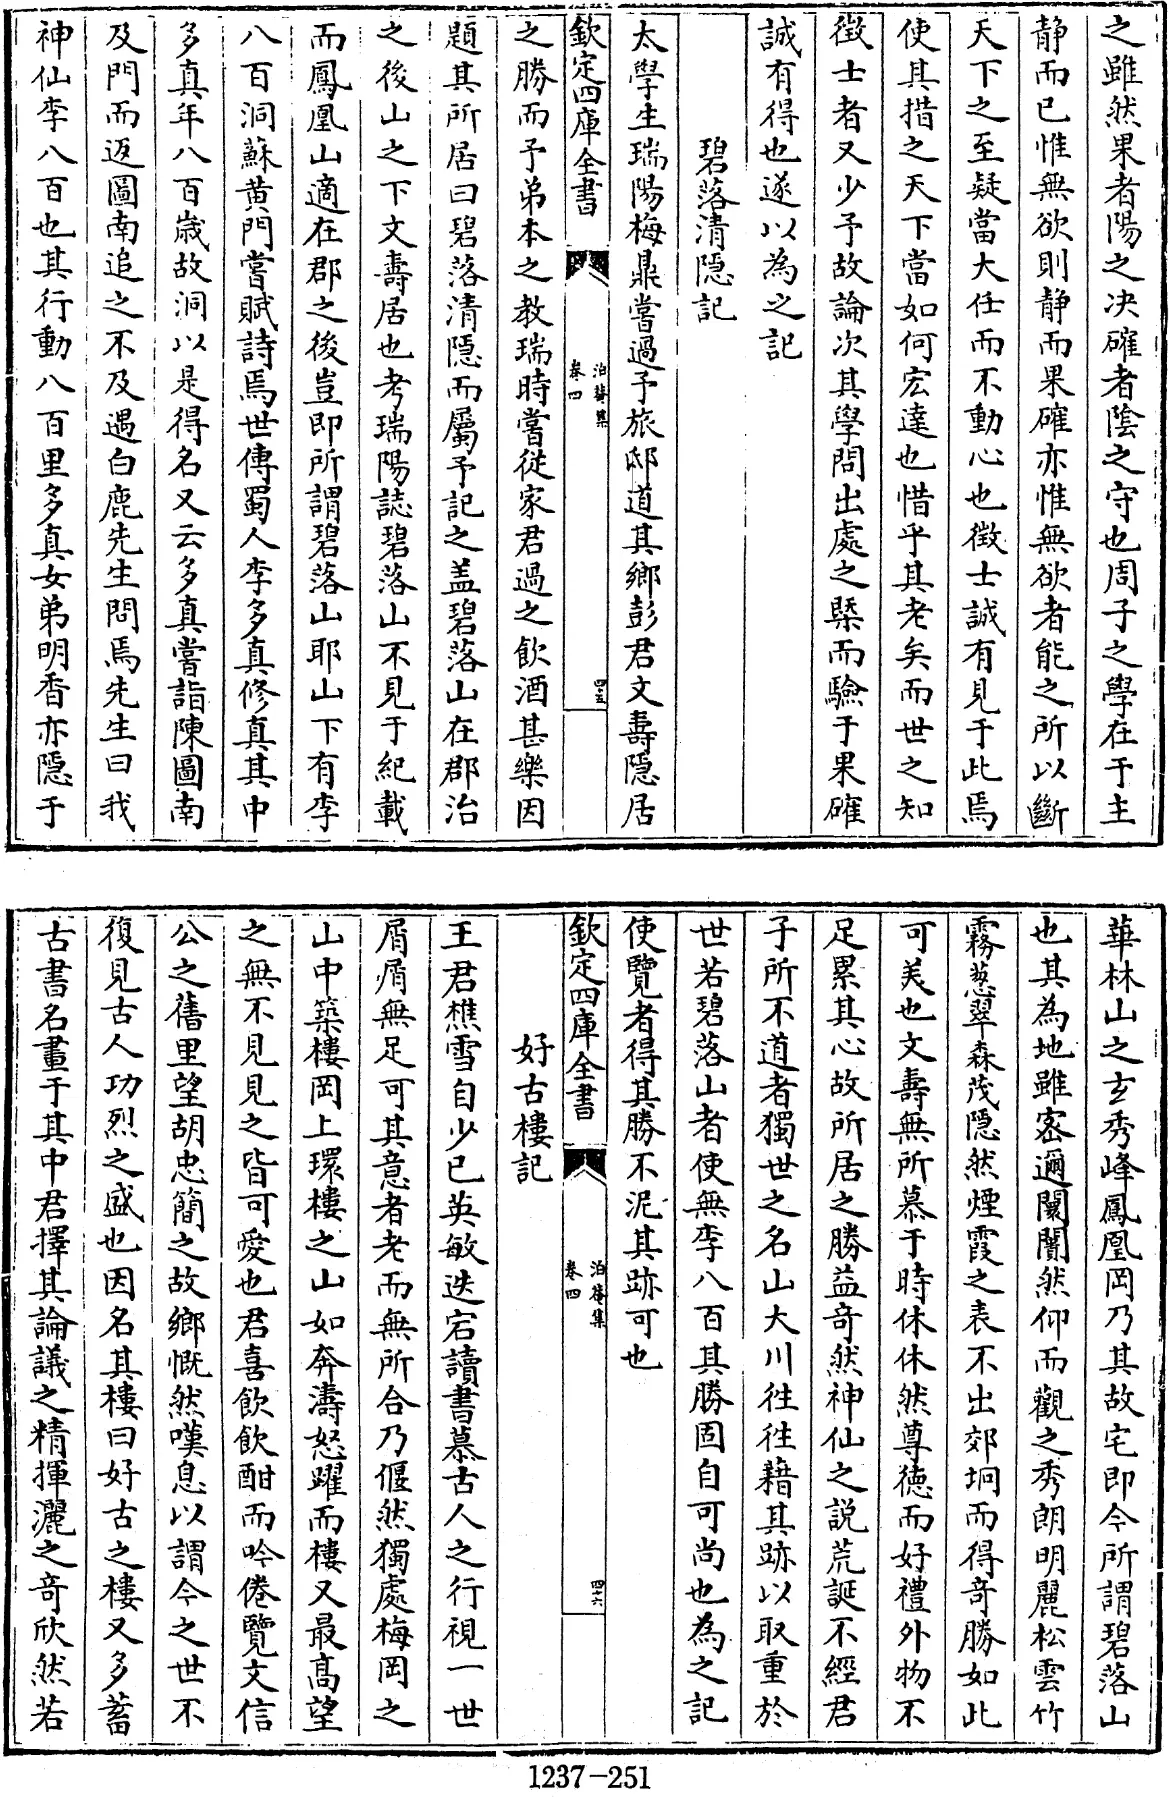 之雖然果者陽之决確者陰之守也周子之學在于主
静而已惟無欲則静而果確亦惟無欲者能之所以斷
天下之至疑當大任而不動心也徴士誠有見于此焉
使其措之天下當如何宏達也惜乎其老矣而世之知
徴士者又少予故論次其學問出處之槩而驗于果確
誠有得也遂以為之記
碧落清隠記
太學生瑞陽梅鼎嘗過予旅邸道其鄉彭君文壽隠居
欽定四庫全書
泊菴集
卷四
四十五
之勝而予弟本之教瑞時嘗從家君過之飲酒甚樂因
題其所居曰碧落清隠而屬予記之盖碧落山在郡治
之後山之下文壽居也考瑞陽誌碧落山不見于紀載
而鳳凰山適在郡之後豈即所謂碧落山耶山下有李
八百洞蘇黄門嘗賦詩焉世傳蜀人李多真修真其中
多真年八百歳故洞以是得名又云多真嘗詣陳圖南
及門而返圖南追之不及遇白鹿先生問焉先生曰我
神仙李八百也其行動八百里多真女弟明香亦隠于
華林山之玄秀峰鳳凰岡乃其故宅即今所謂碧落山
也其為地雖宻邇闤闠然仰而觀之秀朗明麗松雲竹
霧葱翠森茂隠然煙霞之表不出郊坰而得奇勝如此
可羙也文壽無所慕于時休休然尊德而好禮外物不
足累其心故所居之勝益奇然神仙之説荒誕不經君
子所不道者獨世之名山大川徃徃藉其跡以取重於
世若碧落山者使無李八百其勝固自可尚也為之記
使覽者得其勝不泥其跡可也
欽定四庫全書
泊菴集
卷四
四十六
好古樓記
王君樵雪自少已英敏迭宕讀書慕古人之行視一世
屑屑無足可其意者老而無所合乃偃然獨處梅岡之
山中築樓岡上環樓之山如奔濤怒躍而樓又最髙望
之無不見見之皆可愛也君喜飲飲酣而吟倦覽文信
公之舊里望胡忠簡之故鄉慨然嘆息以謂今之世不
復見古人功烈之盛也因名其樓曰好古之樓又多蓄
古書名畫于其中君擇其論議之精揮灑之奇欣然若
1237-251